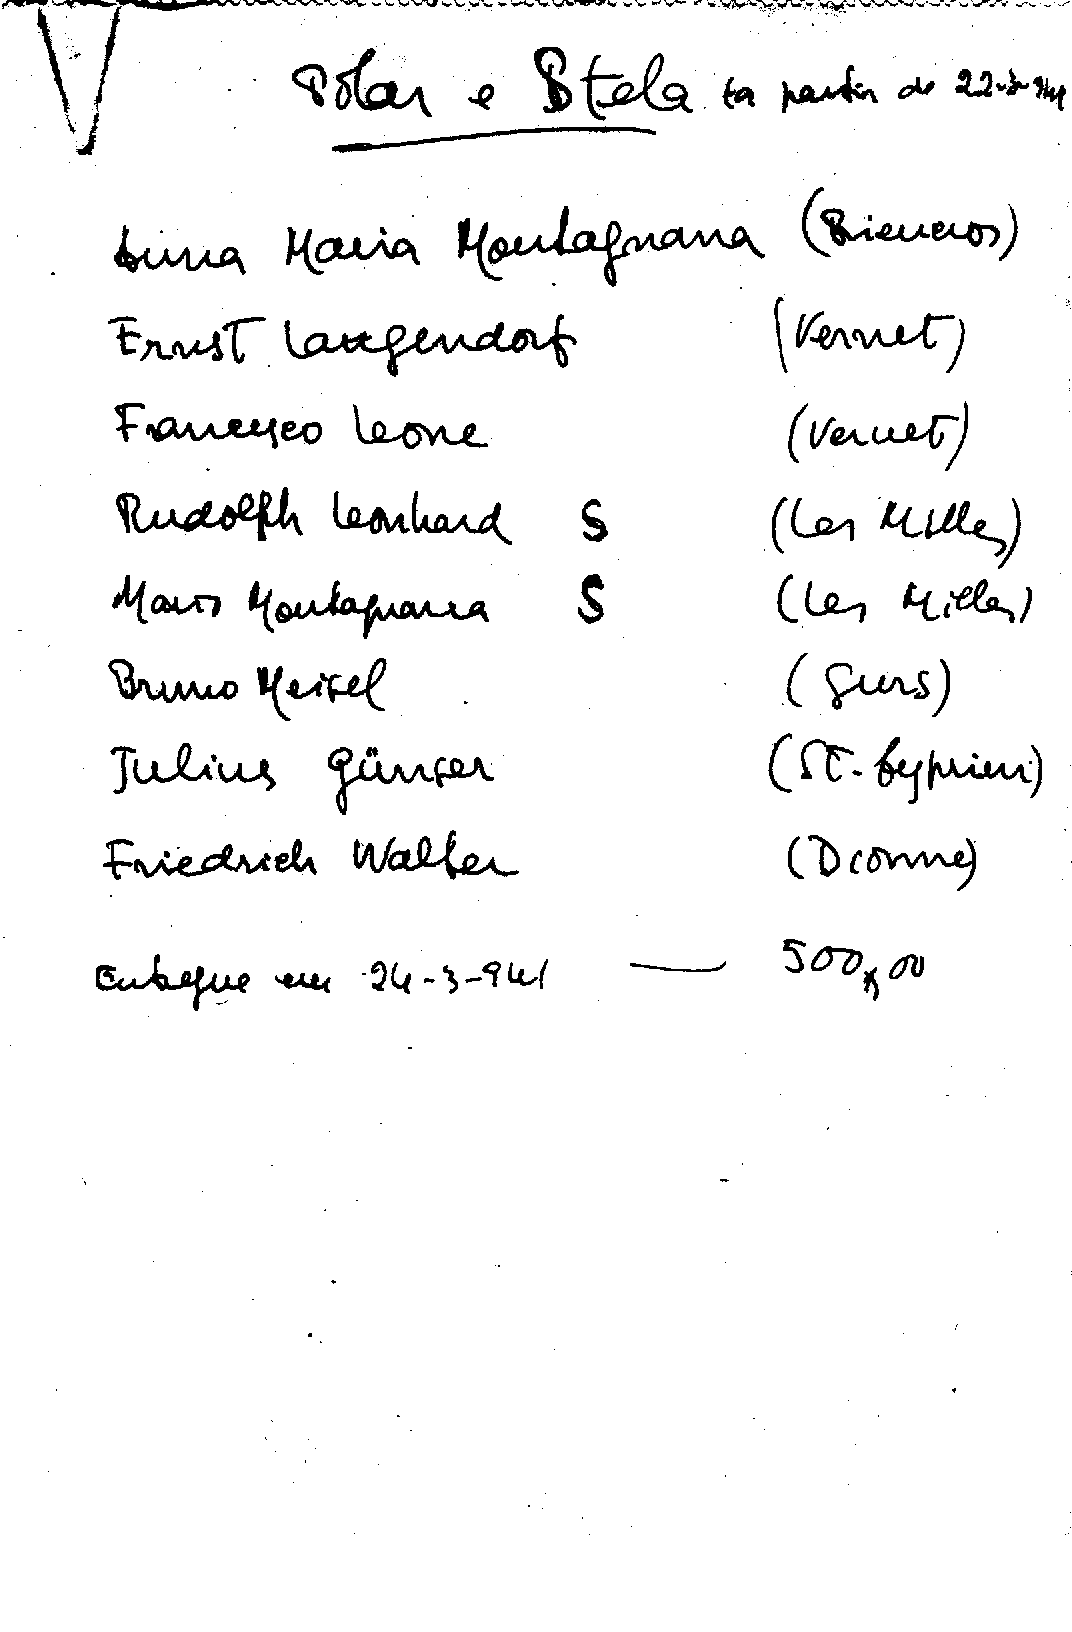 V
Polar e Stela (a partir de 22-3-941
Anna Maria Montagnana (Rieucros)
Ernst Langendorf (Vernet)
Francesco Leone (Vernet)
Rudolph Leonhard S (Les Milles)
Mario Montagnana S (Les Milles)
Bruno Meisel (Gurs)
Julius Günser (St. Cyprien)
Friedrich Walter (Dionne)
Entregue em 24-3-941 — 500,00